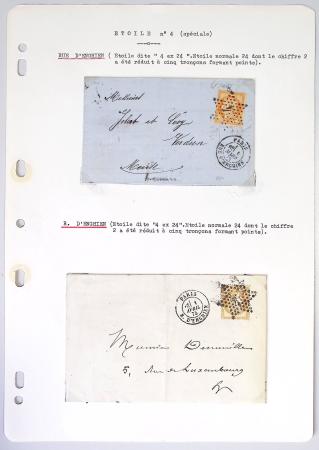 ETOILE n° 4 (spéciale)
RUE D'ENGHIEN ( Etoile dite " 4 ex 24 ".Etoile normale 24 dont le chiffre 2
a été réduit à cinq tronçons formant pointe).
PARIS
Verdun
Meuse
R. D'ENGHIEN (Etoile dite "4 ex 24".Etoile normale 24 dont le chiffre
2 a été réduit à cinq tronçons formant pointe).
PARIS
R. D'ENGHIEN
Monsieur
5, Rue de Luxembourg